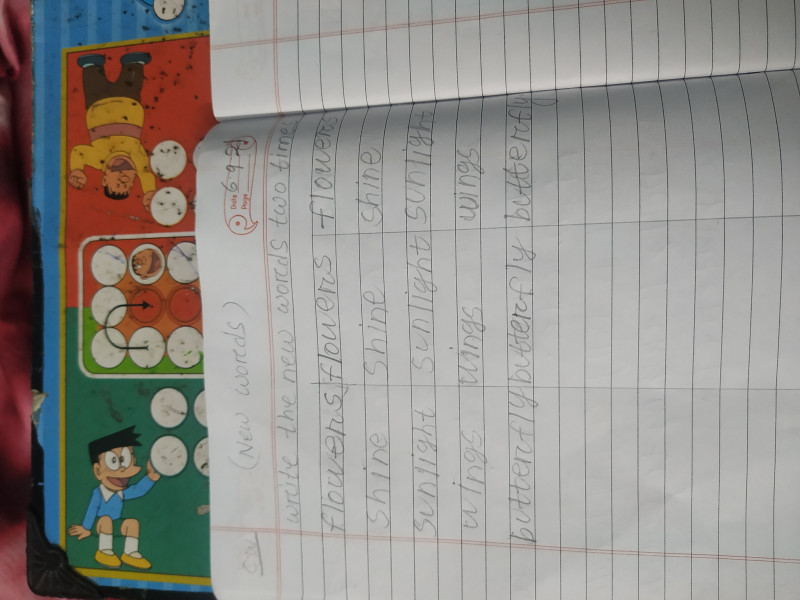 Date 6-9-21
Page
C.W
(New words)
write the new words two times
flowers flowers flowers
Shine Shine Shine
Sunlight Sunlight Sunlight
wings wings wings
butterfly butterfly butterfly